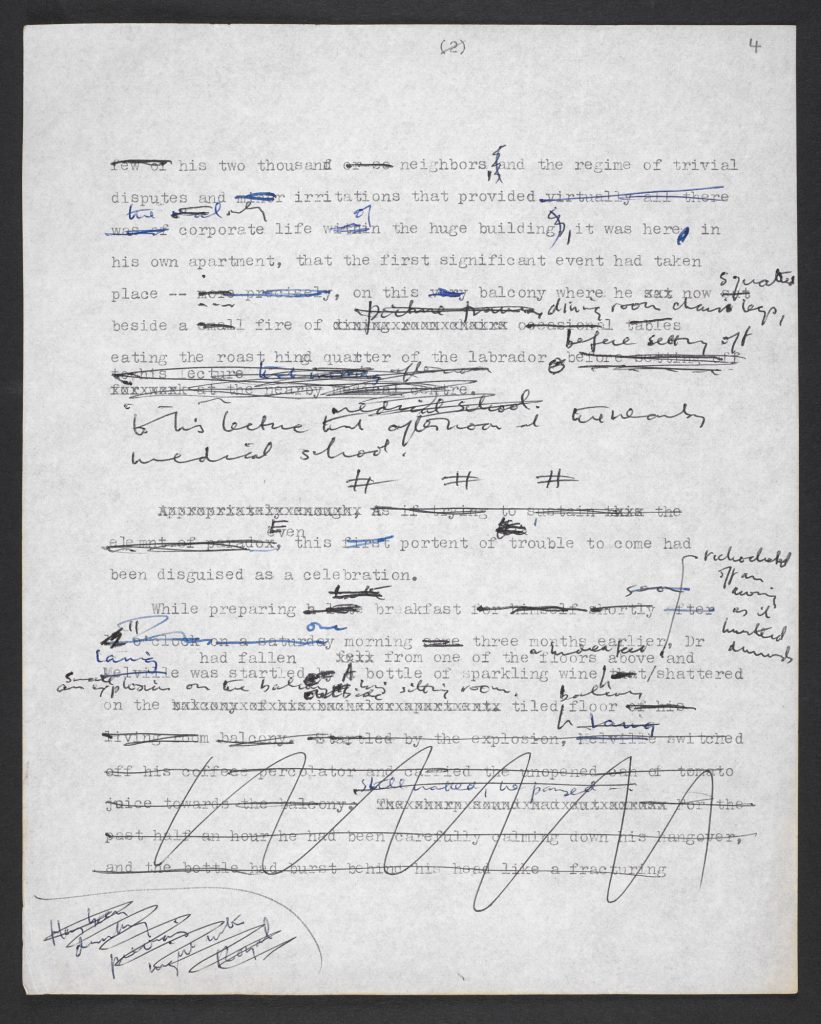 (2) 4
few of his two thousand or so neighbors, and the regime of trivial
disputes and minor irritations that provided virtually all there
the of
was of corporate life within the huge building, it was here, in
his own apartment, that the first significant event had taken
squatted
place -- more precisely, on this very balcony where he sat now sat
picture frames, dining room chair legs,
beside a small fire of dining room chairs occasional tables
before setting off
eating the roast hind quarter of the labrador, before setting off
to his lecture afternoon
for work at the nearby medical centre.
medical school.
to his lecture that afternoon at the nearby
medical school.
# # #
Appropriately enough, As if trying to sustain this the
Even
element of paradox, this first portent of trouble to come had
been disguised as a celebration.
soon
While preparing breakfast for himself shortly after
11 one
o'clock on a saturday morning some three months earlier, Dr
Laing had fallen from one of the floors above and
Melville was startled A bottle of sparkling wine that/shattered
an explosion on the outside his sitting room.
balcony
on the balcony of his bachelor apartment tiled floor of his
h Laing
living room balcony. Startled by the explosion, Melville switched
off his coffee percolator and carried the unopened can of tomato
still naked, he paused --
juice towards the balcony. The sharp sound had For the
past half an hour he had been carefully calming down his hangover,
and the bottle had burst behind his head like a fracturing
ricocheted
off an
awning
as it
hundred
diamonds
night with
Royal